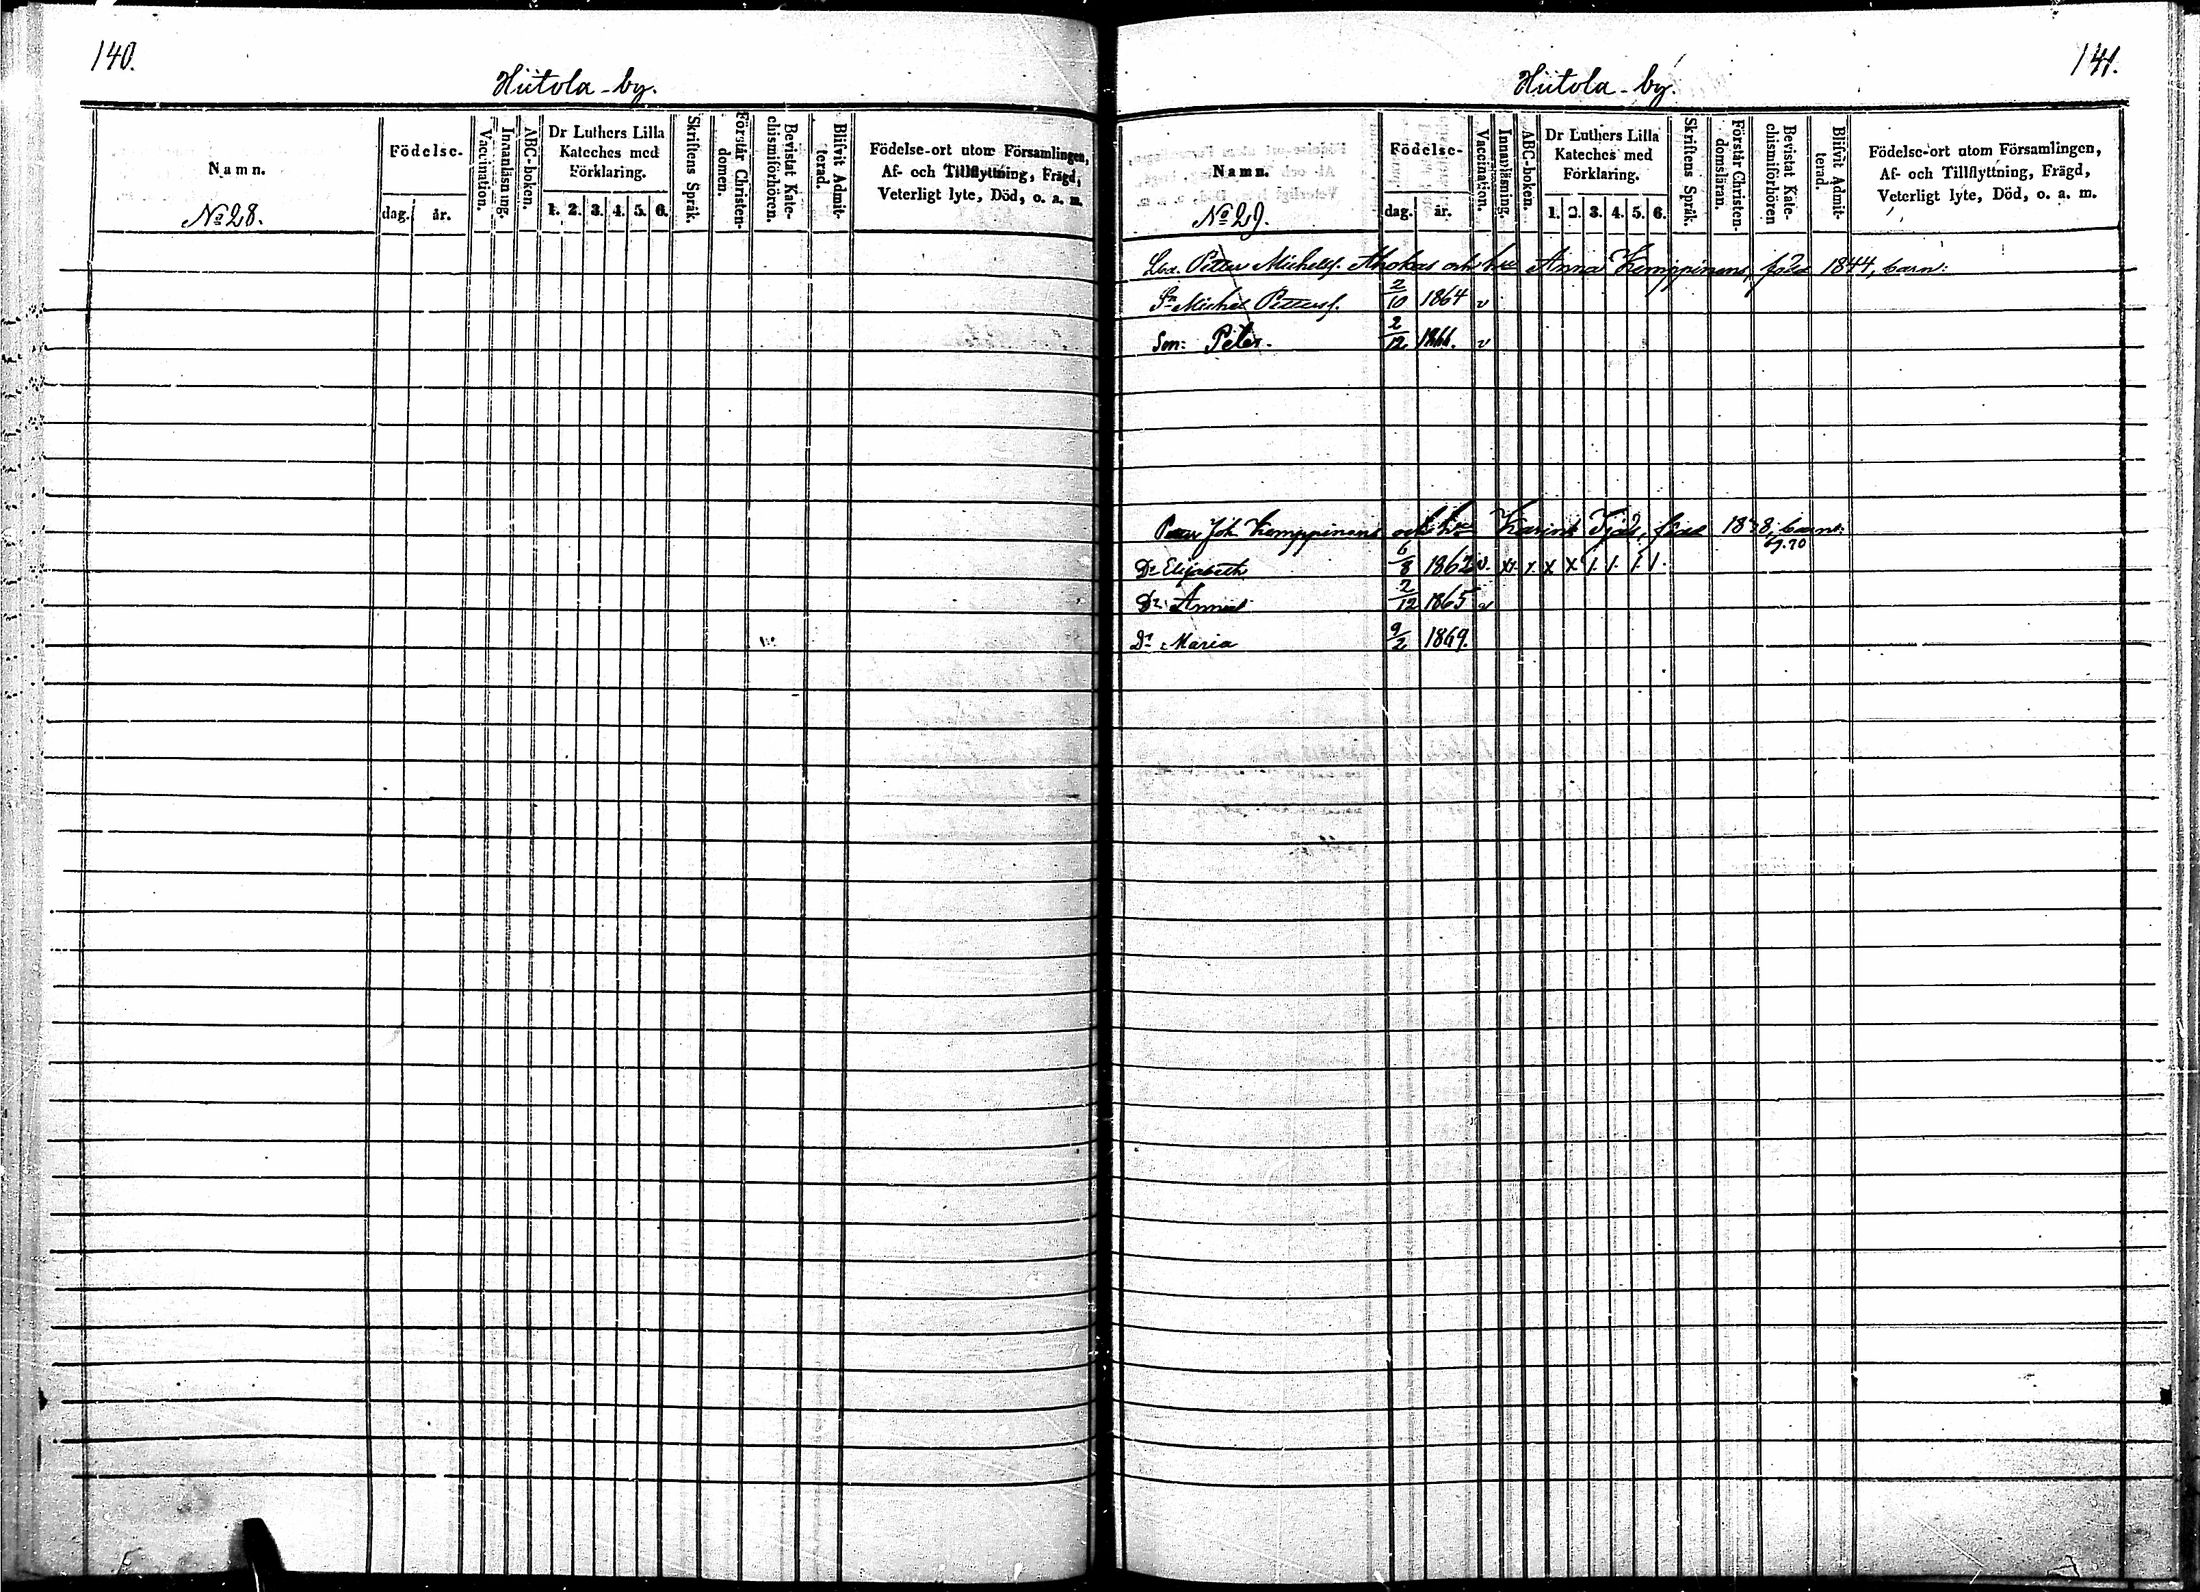 140.
Hiitola-by.
Namn.
No 28.
Födelse-
dag. år.
Vaccination.
Innanläsning.
ABC-boken.
Dr Luthers Lilla
Kateches med
Förklaring.
1. 2. 3. 4. 5. 6.
Skriftens Språk.
Förstår Christen-
domen.
Bevistat Kate-
chismiförhören.
Blifvit Admit-
terad.
Födelse-ort utom Församlingen,
Af- och Tillflyttning, Frägd,
Veterligt lyte, Död, o. a. m.
141.
Hiitola-by.
Namn.
No 29.
Födelse-
dag. år.
Vaccination.
Innanläsning.
ABC-boken.
Dr Luthers Lilla
Kateches med
Förklaring.
1. 2. 3. 4. 5. 6.
Skriftens Språk.
Förstår Christen-
domsläran.
Bevistat Kate-
chismiförhören
Blifvit Admit-
terad.
Födelse-ort utom Församlingen,
Af- och Tillflyttning, Frägd,
Veterligt lyte, Död, o. a. m.
Petter Michelss. Ahokas och Anna Kemppinens, född 1844, barn:
Sn Michel Petterss. 2/10 1864 v
Son: Peter. 2/12 1866. v
Joh Kemppinens och Karin född 1838, barn:
69.70
Dr Elisabeth 6/8 1862 v. x x x x
Dr Anna 2/12 1865 v
Dr Maria 9/2 1869.